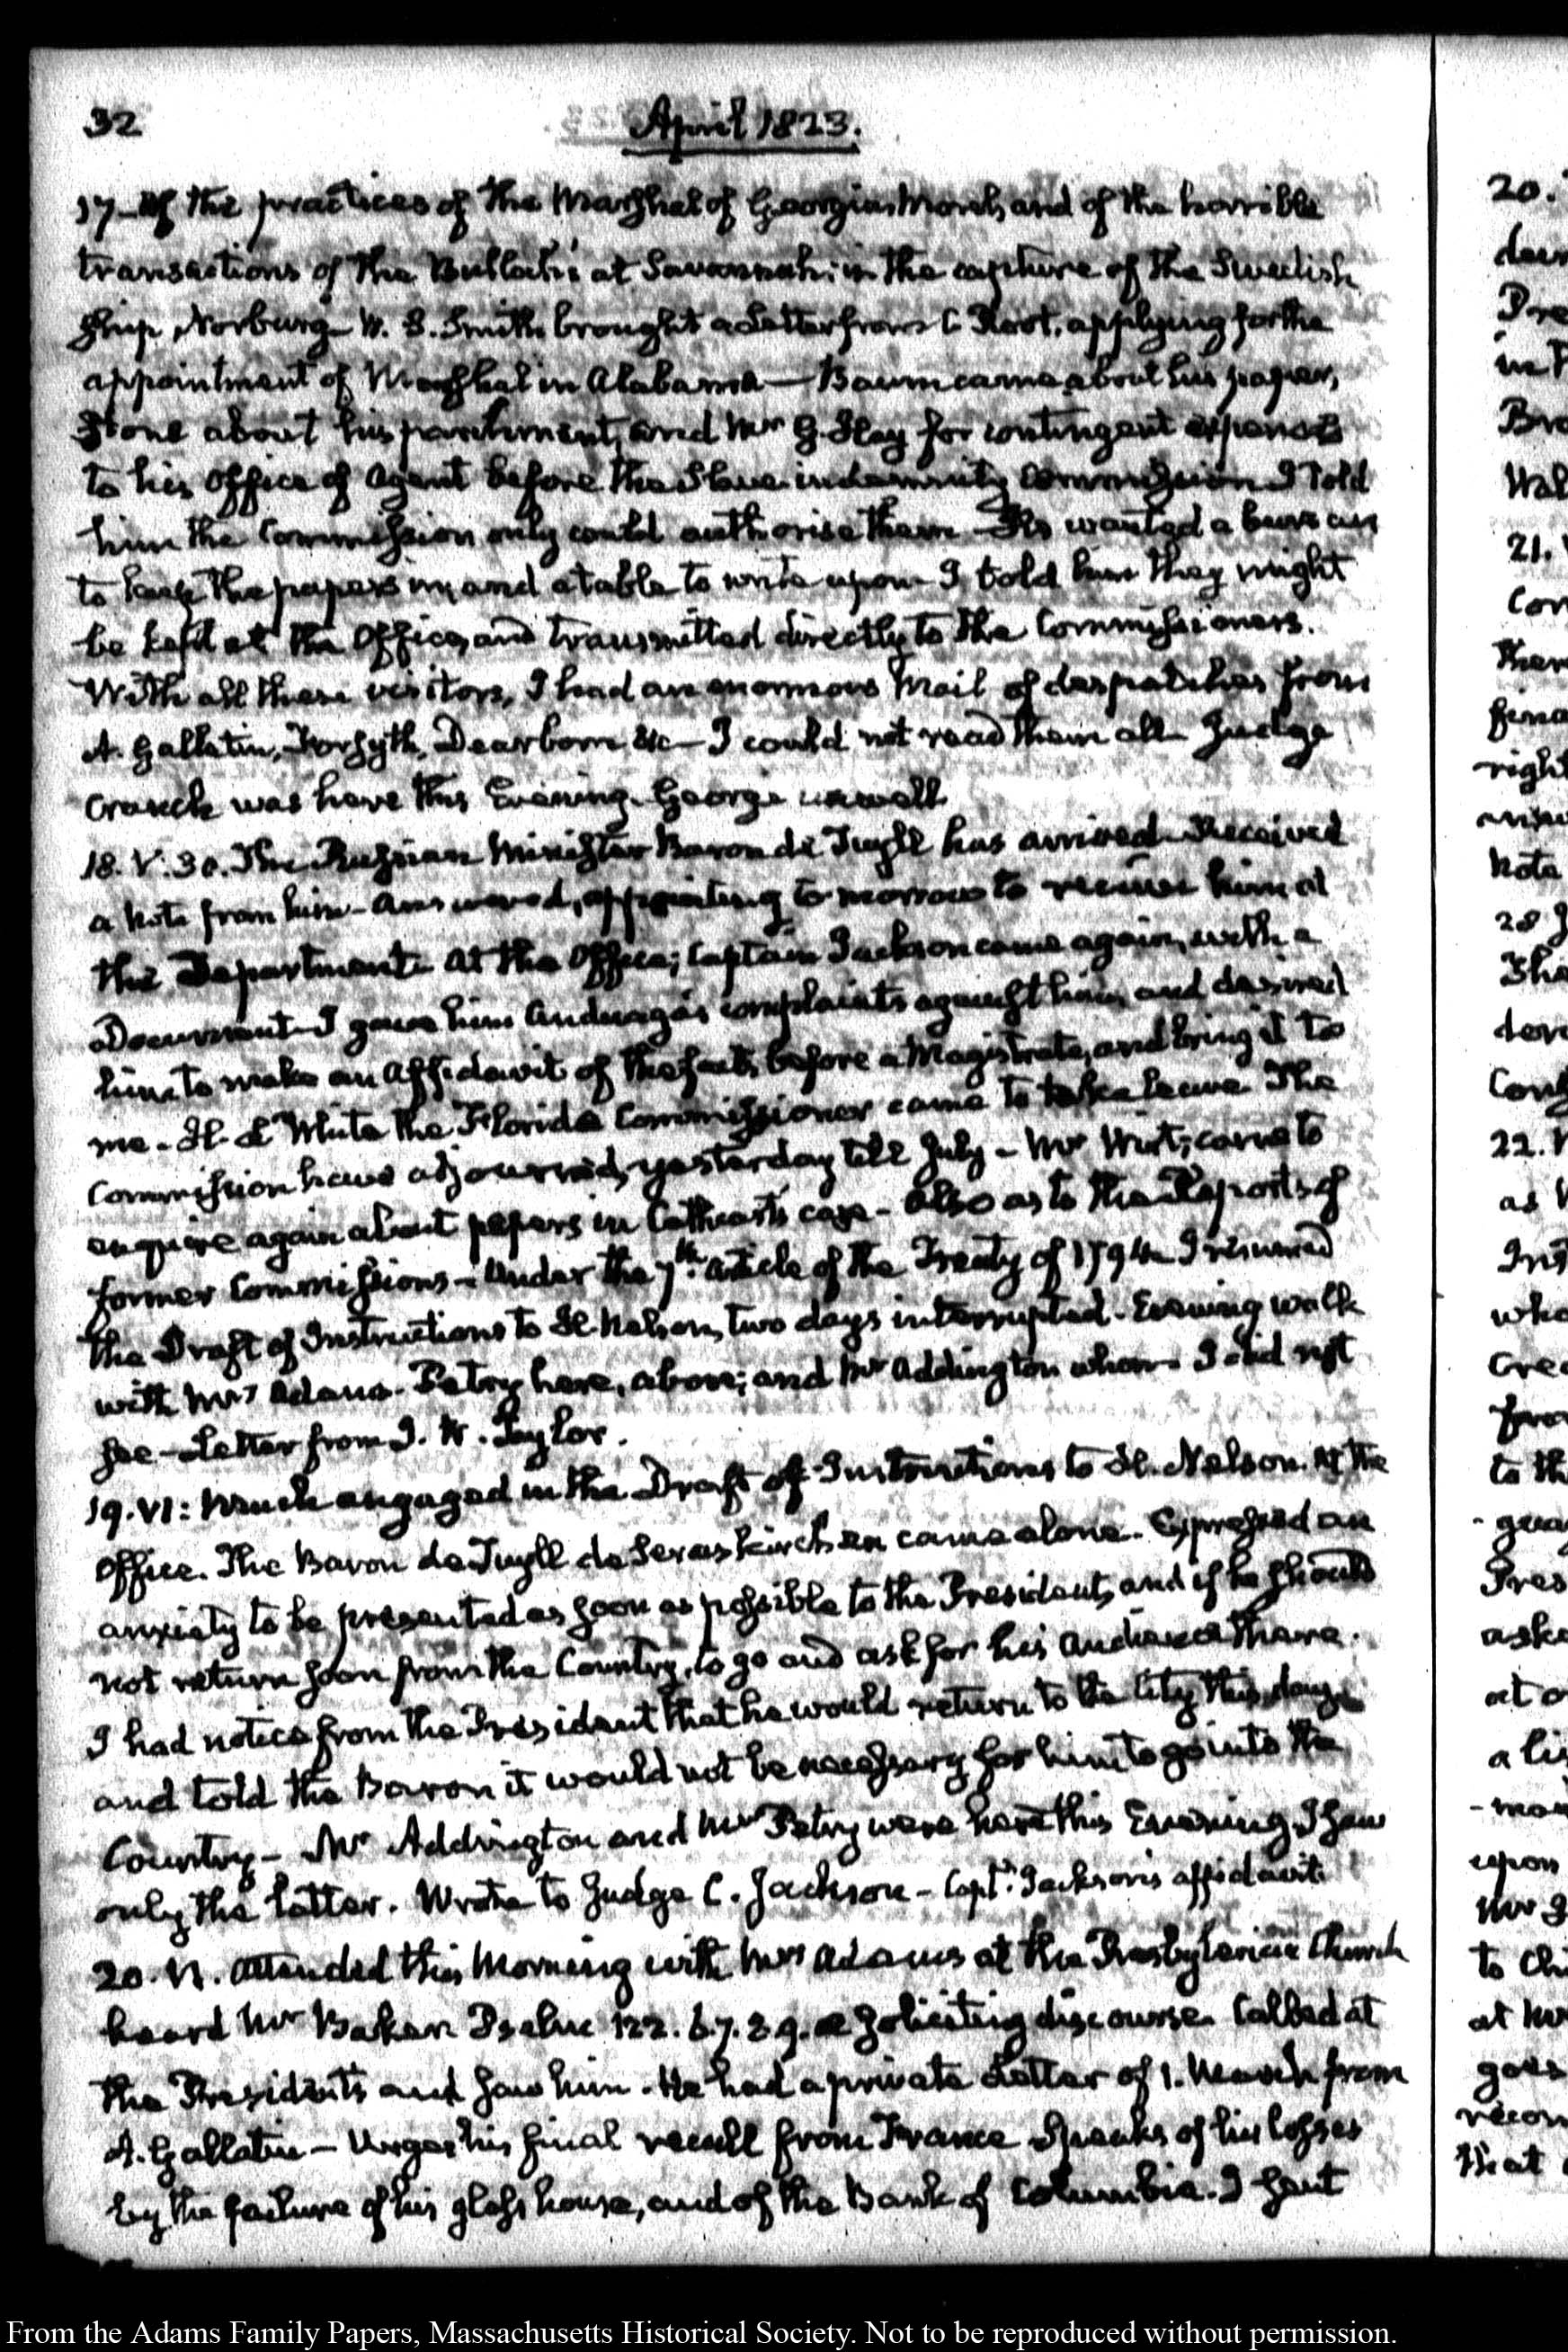 32
April 1823.
17 – Of the practices of the Marshal of Georgia, Morel, and of the horrible
transactions of the Bulloch's at Savannah; in the capture of the Swedish
Ship Norburg – W. S. Smith brought a Letter from C Root, applying for the
appointment of Marshal in Alabama — Baum came about his paper,
Stone about his parchment, and Mr G. Hay for contingent expenses
to his Office of Agent before the Slave indemnity Commission. I told
him the Commission only could authorise them – He wanted a bureau
to keep the papers in, and a table to write upon – I told him they might
be kept at the Office, and transmitted directly to the Commissioners.
With all these visitors, I had an enormous Mail of despatches from
A. Gallatin, Forsyth, Dearborn &c – I could not read them all – Judge
Cranch was here this Evening. George unwell
18. V:30. The Russian Minister Baron de Tuyll has arrived – Received
a Note from him – answered, appointing to morrow to receive him at
the Department – At the Office; Captain Jackson came again, with a
Document – I gave him Anduaga's complaints against him, and desired
him to make an Affidavit of the facts, before a Magistrate, and bring it to
me – White the Florida Commissioner came to take leave The
Commission have adjourned, yesterday till July – Mr Wirt; came to
enquire again about papers in Cathcart's case – Also as to the Reports of
former Commissions – Under the 7th. article of the Treaty of 1794 – I resumed
the Draft of Instructions to H. Nelson, two days interrupted – Evening walk
with Mrs Adams – Petry here, above; and Mr Addington whom I did not
see – Letter from J. W. Taylor.
19. VI: Much engaged in the Draft of Instructions to H. Nelson. At the
Office. The Baron de Tuyll de Serooskerken came alone. Expressed an
anxiety to be presented as soon as possible to the President, and if he should
not return soon from the Country, to go and ask for his audience there.
I had notice from the President that he would return to the City this day
and told the Baron it would not be necessary for him to go into the
Country – Mr Addington and Mr Petry were here this Evening, I saw
only the latter. Wrote to Judge C. Jackson – Capt. Jackson's affidavit
20. Attended this Morning with Mrs Adams at the Presbyterian Church
heard Mr Baker Psalm 122. 6.7.8.9. a Soliciting discourse. Called at
the President's and saw him. He had a private Letter of 1. March from
A. Gallatin – Urges his final recall from France Speaks of his losses
by the failure of his glass house, and of the Bank of Columbia. I sent
20.
21.
22.
From the Adams Family Papers, Massachusetts Historical Society. Not to be reproduced without permission.